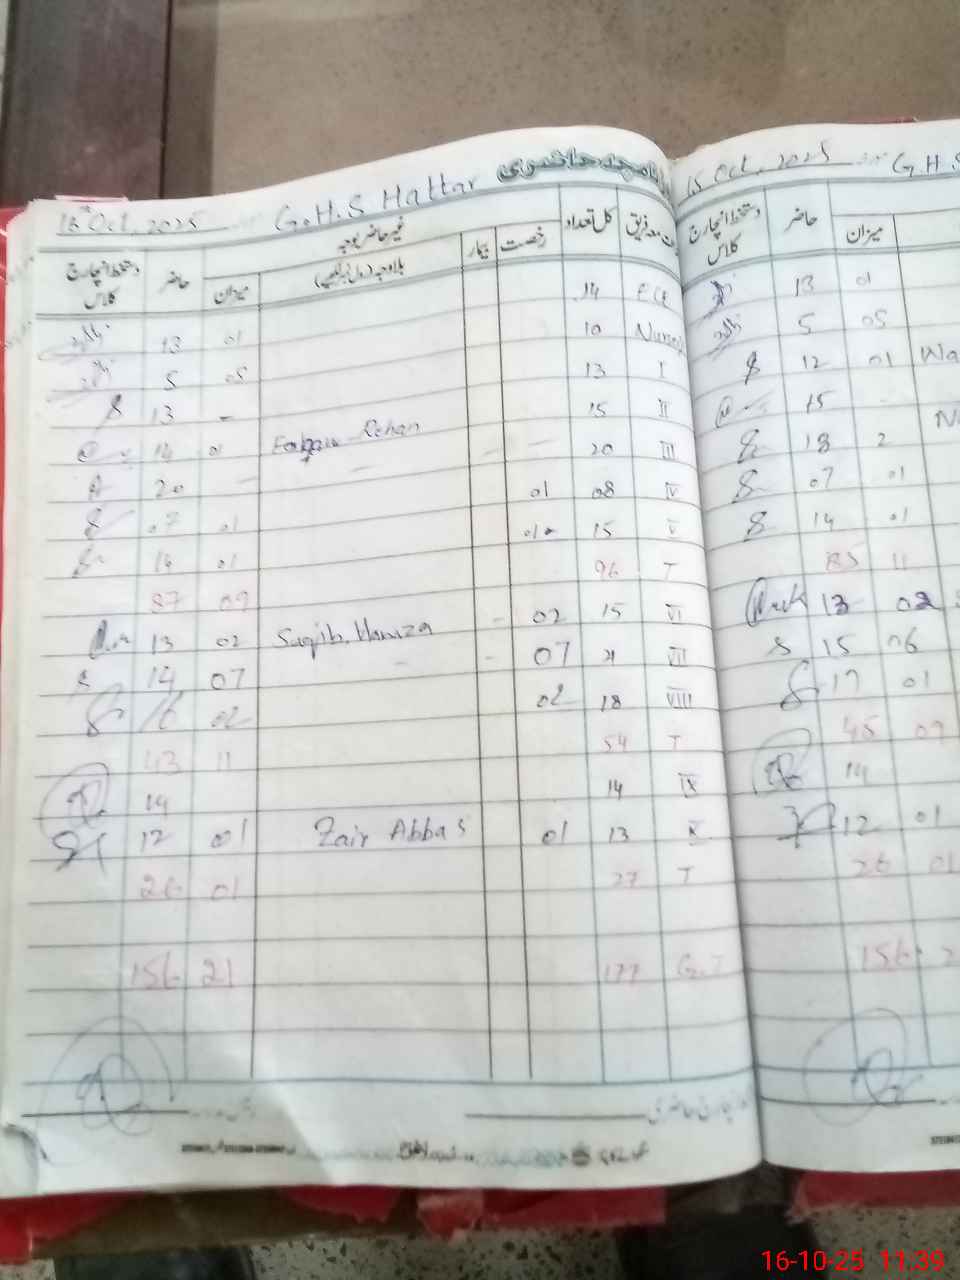 16th Oct, 2025 G.H.S Hattar روزنامچہ حاضری
دستخط انچارج کلاس حاضر میزان غیر حاضر بوجہ بیمار رخصت کل تعداد
13 01 14 ECE
5 05 10 Nursery
13 - 13 I
14 01 Rehan 15 II
20 - 20 III
07 01 01 08 IV
14 01 01 15 V
87 09 96 T
13 02 Saqib. Hamza - 02 15 VI
14 07 - 07 21 VII
16 02 02 18 VIII
43 11 54 T
14 14 IX
12 01 Zair Abbas 01 13 X
26 01 27 T
156 21 177 G.T
15 Oct, 2025 G.H.S
دستخط انچارج کلاس حاضر میزان
13 01
5 05
12 01 Wa
15 -
18 2
07 01
14 01
85 11
13 02
15 06
17 01
45 09
14
12 01
26 01
156
16-10-25 11:39